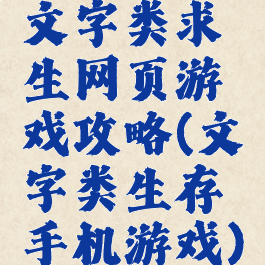 文字类求
生网页游
戏攻略(文
字类生存
手机游戏)